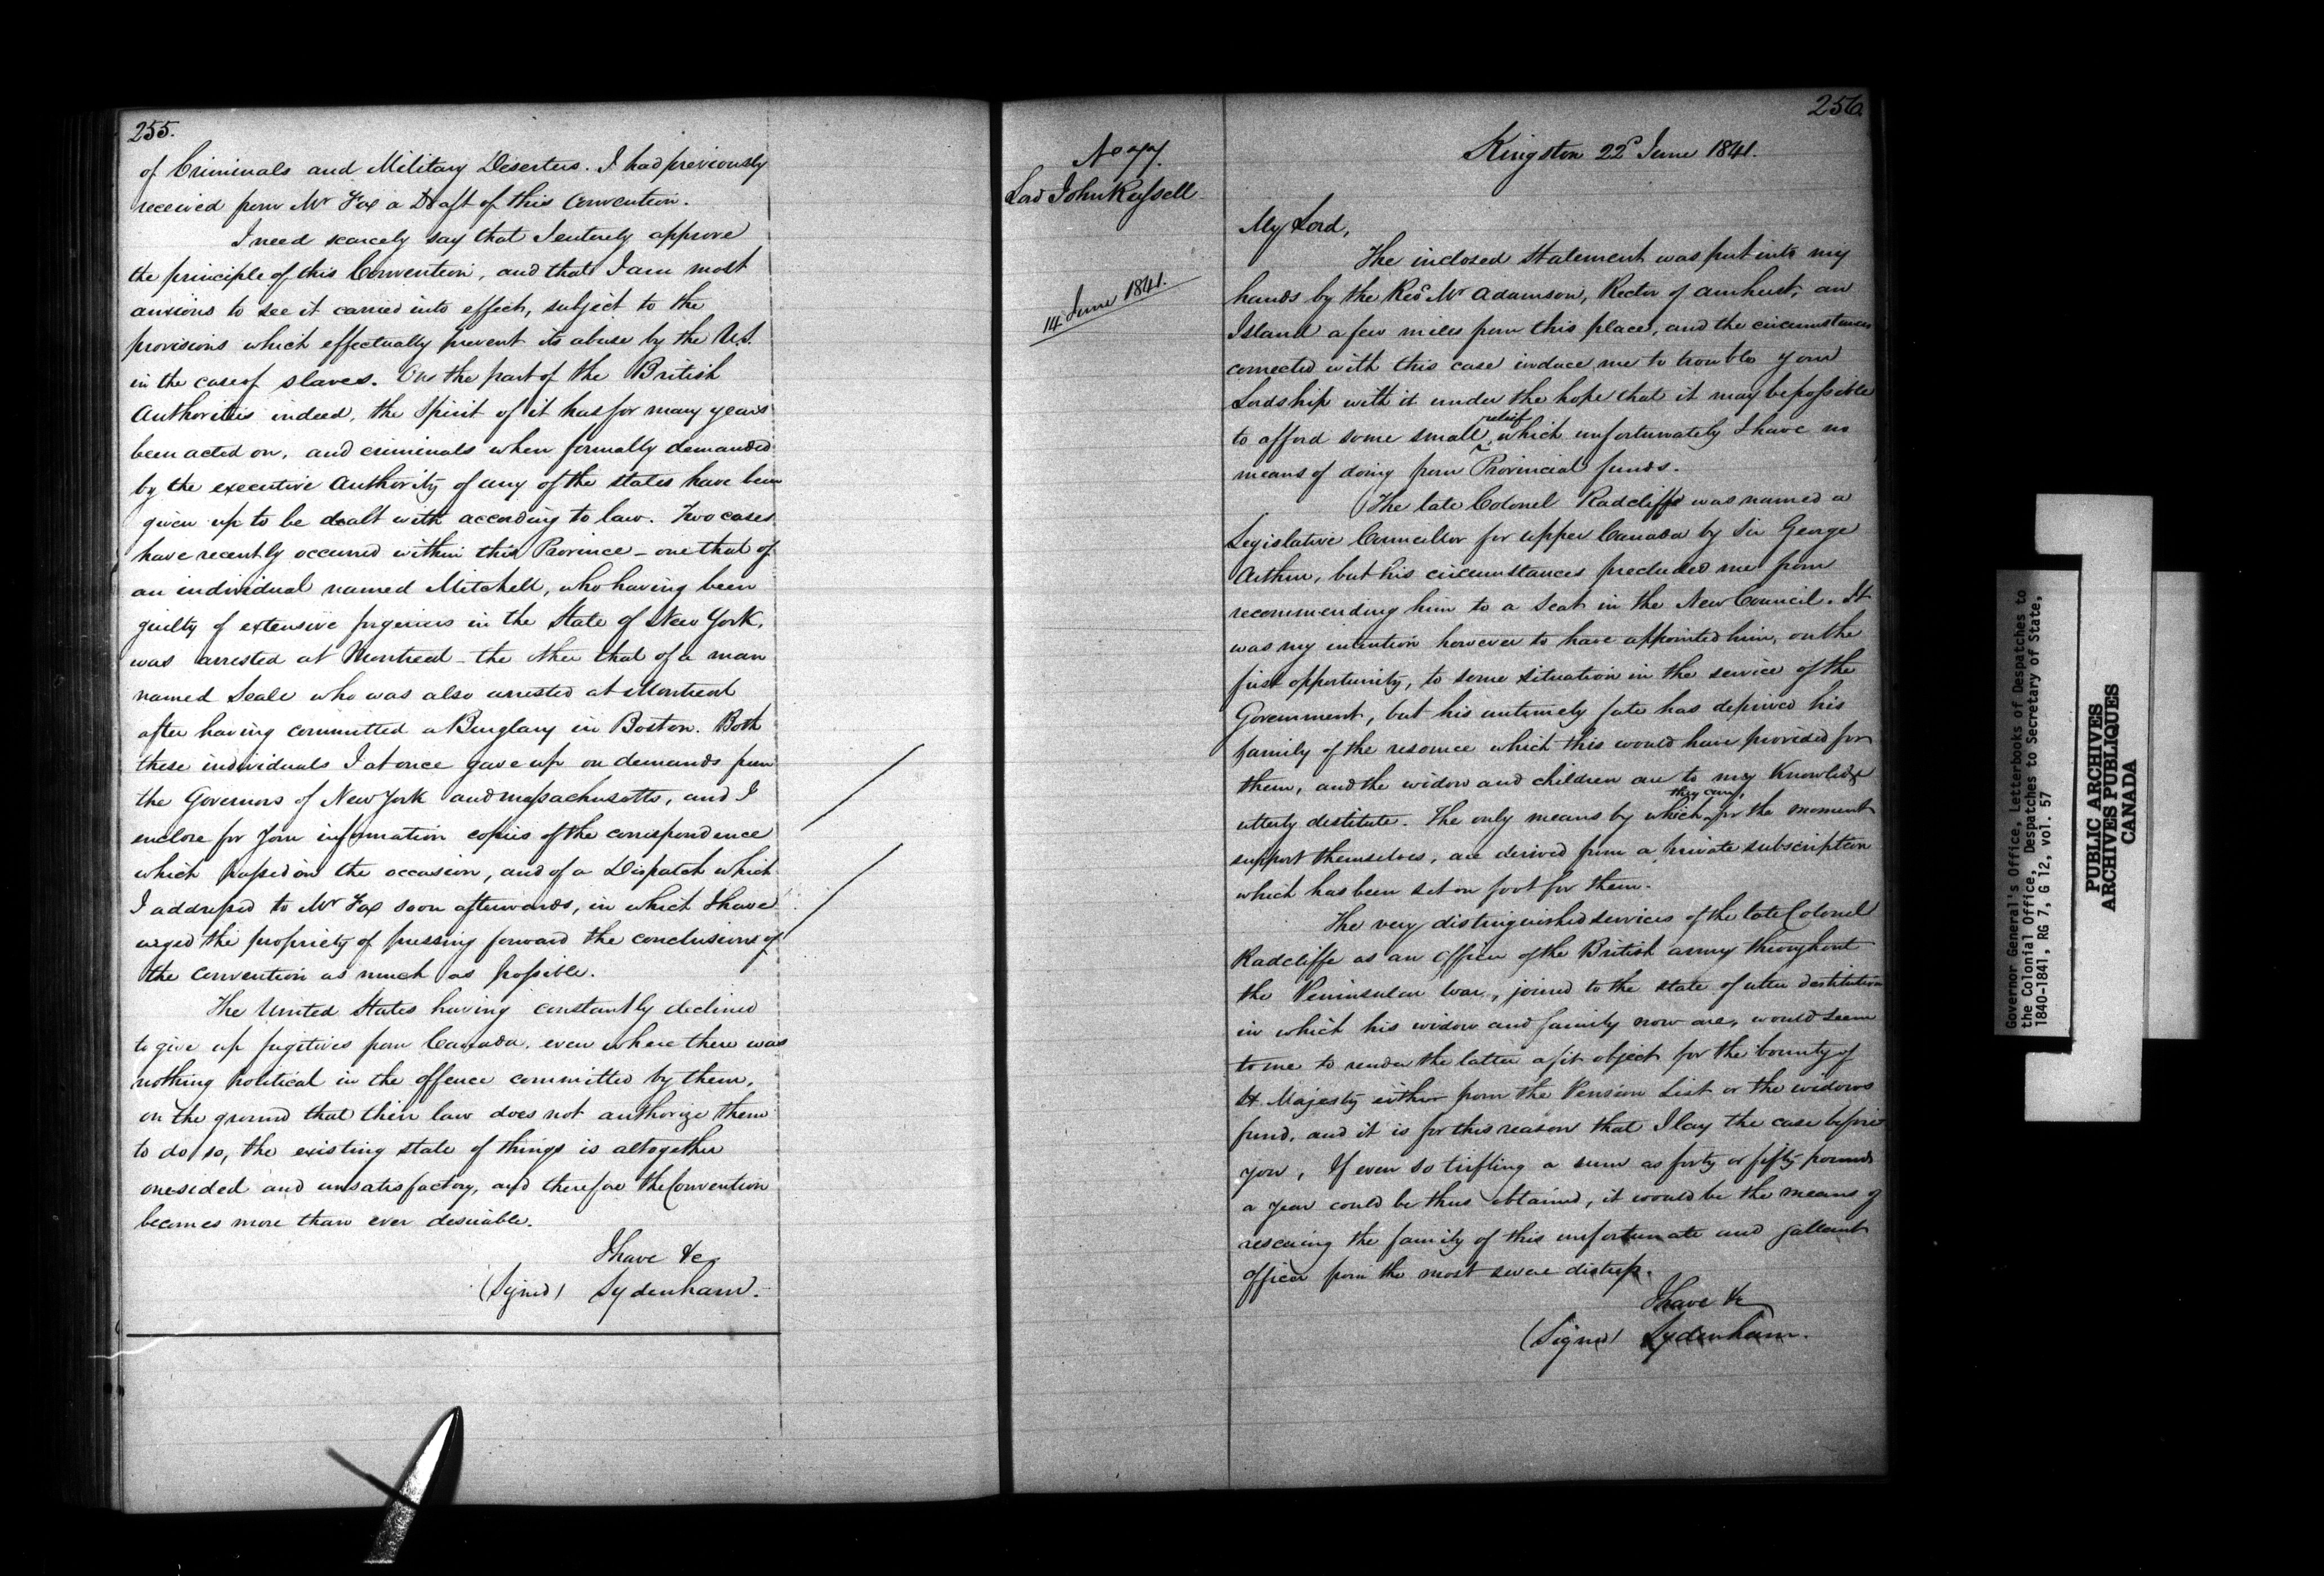 255.
of Criminals and Military Deserters. I had previously
received from Mr Fox a Draft of this Convention.
I need scarcely say that I entirely approve
the principle of this Convention, and that I am most
anxious to see it carried into effect, subject to the
provisions which effectually prevent its abuse by the U.S.
in the case of slaves. On the part of the British
Authorities indeed, the Spirit of it has for many years
been acted on, and criminals when formally demanded
by the executive Authority of any of the states have been
given up to be dealt with according to law. Two cases
have recently occurred within this Province - one that of
an individual named Mitchell, who having been
guilty of extensive forgeries in the State of New York,
was arrested at Montreal - the other that of a man
named Seale who was also arrested at Montreal
after having committed a Burglary in Boston. Both
these individuals I at once gave up on demands from
the Governors of New York and Massachusetts, and I
enclose for your information copies of the correspondence
which passed on the occasion, and of a Dispatch which
I addressed to Mr Fox soon afterwards, in which I have
urged the propriety of pressing forward the conclusions of
the Convention as much as possible.
The United States having constantly declined
to give up fugitives from Canada, even where there was
nothing political in the offence committed by them,
on the ground that their law does not authorize them
to do so, the existing state of things is altogether
onesided and unsatisfactory, and therefore the Convention
becomes more than ever desirable.
I have &c
(Signed) Sydenham.
256
No 77.
Lord John Russell
14 June 1841.
Kingston 22d June 1841.
My Lord,
The inclosed Statement was put into my
hands by the Revd Mr Adamson, Rector of Amherst, an
Island a few miles from this place, and the circumstances
connected with this case induce me to trouble your
Lordship with it under the hope that it may be possible
to afford some small relief, which unfortunately I have no
means of doing from Provincial funds.
The late Colonel Radcliffe was named a
Legislative Councillor for Upper Canada by Sir George
Arthur, but his circumstances precluded me from
recommending him to a Seat in the New Council. It
was my intention however to have appointed him, on the
first opportunity, to some situation in the service of the
Government, but his untimely fate has deprived his
family of the resource which this would have provided for
them, and the widow and children are to my Knowledge
utterly destitute. The only means by which they can, for the moment
support themselves, are derived from a private subscription
which has been set on foot for them.
The very distinguished services of the late Colonel
Radcliffe as an Officer of the British army throughout
the Peninsular War, joined to the state of utter destitution
in which his widow and family now are, would seem
to me to render the latter a fit object for the bounty of
H. Majesty either from the Pension List or the widows
fund, and it is for this reason that I lay the case before
you, If even so trifling a sum as forty or fifty pounds
a year could be thus obtained, it would be the means of
rescuing the family of this unfortunate and gallant
Officer from the most severe distress.
I have &c
(Signed) Sydenham.
Governor General's Office, Letterbooks of Despatches to
the Colonial Office, Despatches to Secretary of State,
1840-1841, RG 7, G 12, vol. 57
PUBLIC ARCHIVES
ARCHIVES PUBLIQUES
CANADA